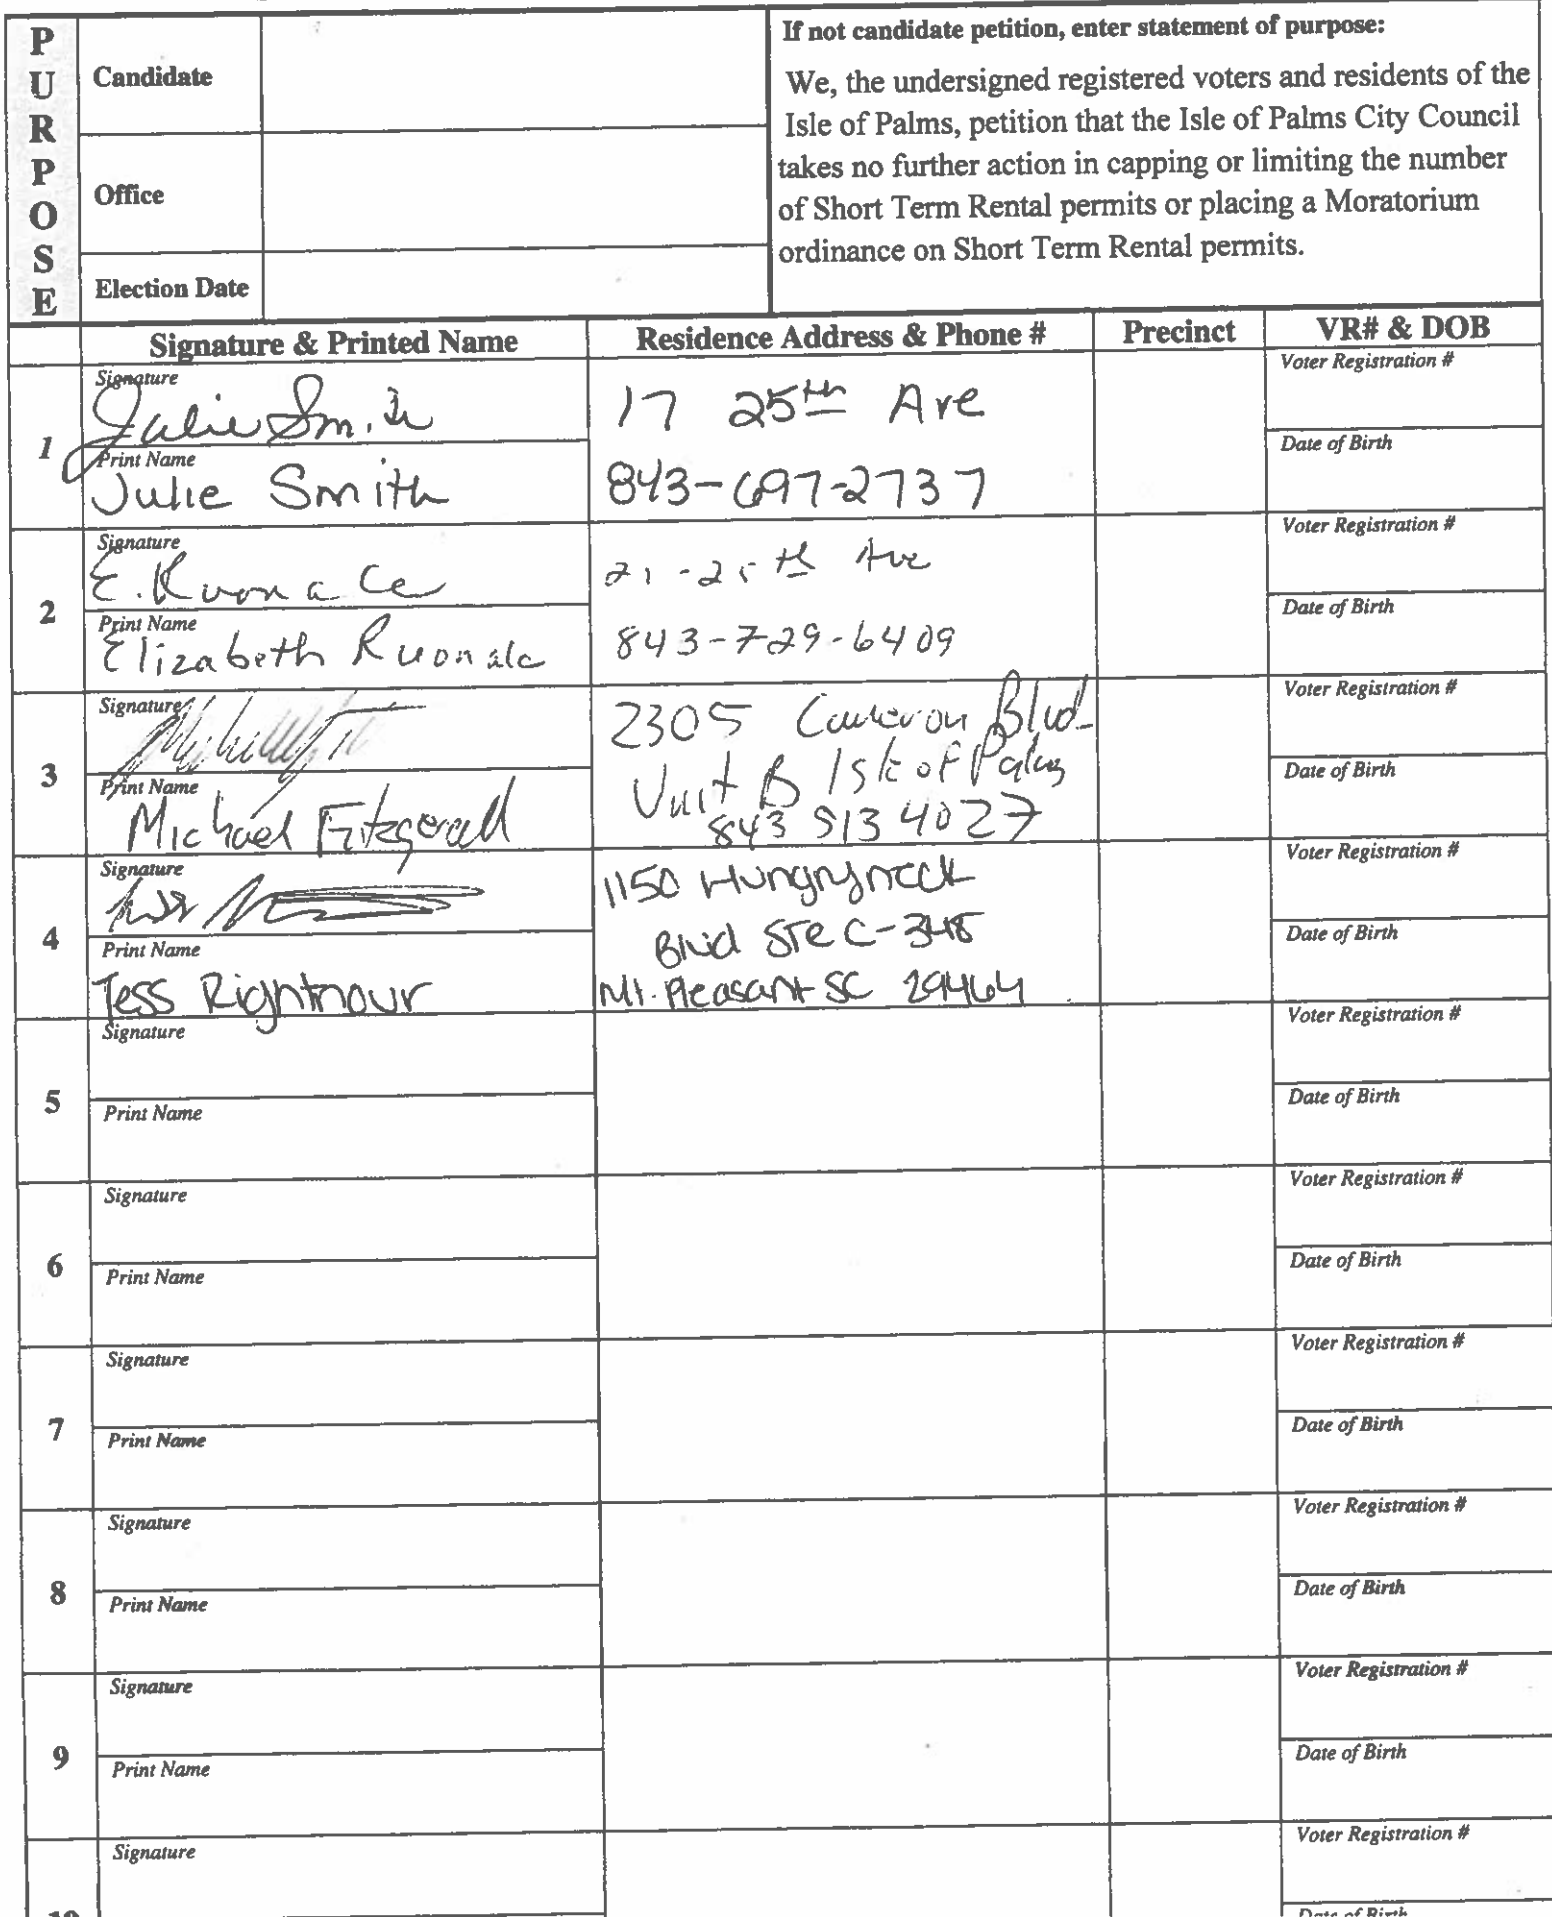 PURPOSE
Candidate
Office
Election Date
If not candidate petition, enter statement of purpose:
We, the undersigned registered voters and residents of the
Isle of Palms, petition that the Isle of Palms City Council
takes no further action in capping or limiting the number
of Short Term Rental permits or placing a Moratorium
ordinance on Short Term Rental permits.
Signature & Printed Name
Residence Address & Phone #
Precinct
VR# & DOB
1
Signature
Julie Smith
Print Name
Julie Smith
17 25th Ave
843-697-2737
Voter Registration #
Date of Birth
2
Signature
E. Ruonala
Print Name
Elizabeth Ruonala
21-25th Ave
843-729-6409
Voter Registration #
Date of Birth
3
Signature
Print Name
Michael Fitzgerald
2305 Cameron Blvd
Unit B Isle of Palms
843 513 4027
Voter Registration #
Date of Birth
4
Signature
Print Name
Tess Rightmour
1150 Hungryneck
Blvd Ste C-348
Mt. Pleasant SC 29464
Voter Registration #
Date of Birth
5
Signature
Print Name
Voter Registration #
Date of Birth
6
Signature
Print Name
Voter Registration #
Date of Birth
7
Signature
Print Name
Voter Registration #
Date of Birth
8
Signature
Print Name
Voter Registration #
Date of Birth
9
Signature
Print Name
Voter Registration #
Date of Birth
10
Signature
Voter Registration #
Date of Birth